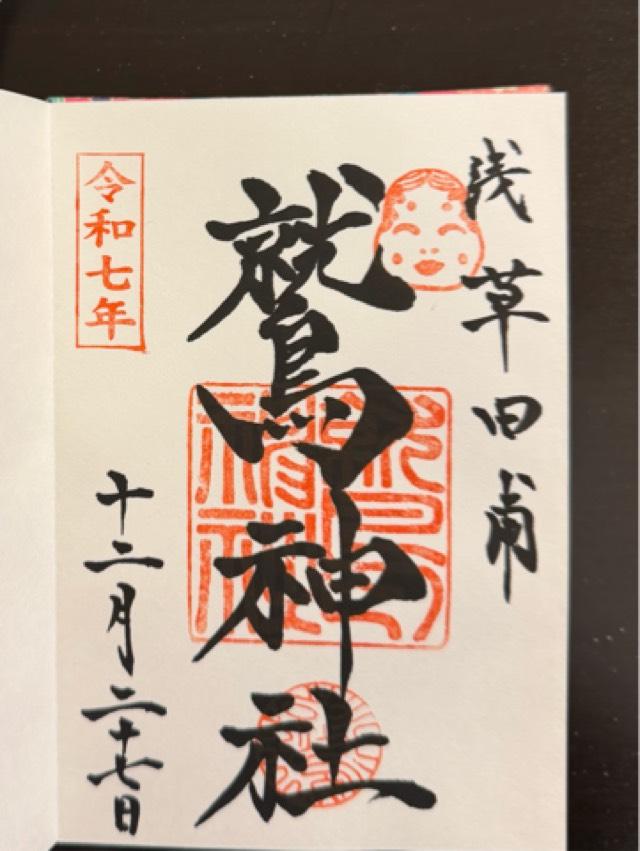 浅草田甫
鷲神社
令和七年
十二月二十七日